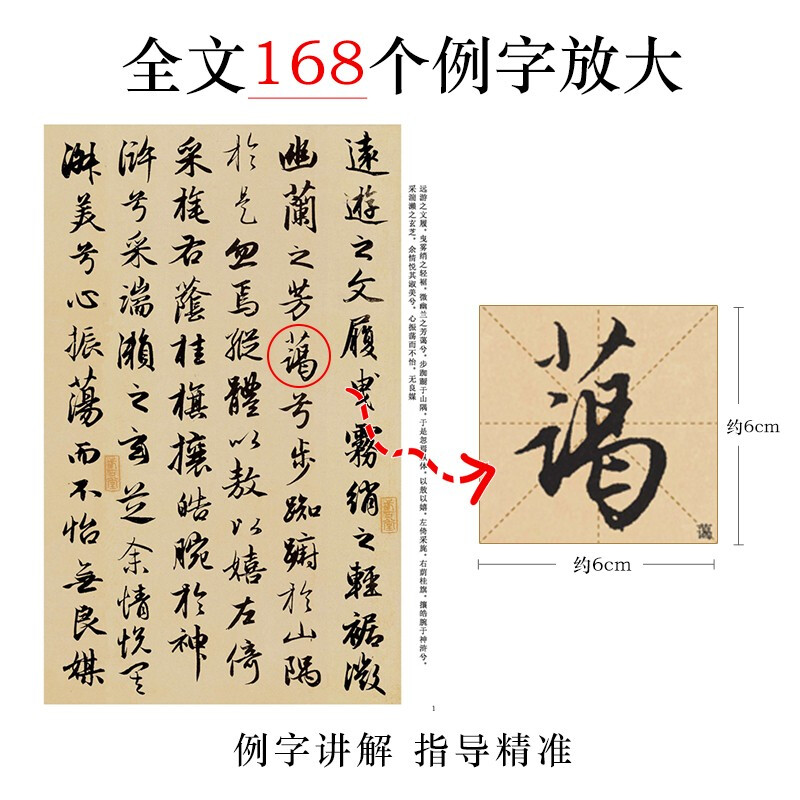 全文168个例字放大
遠遊之文履曳霧綃之輕裾微
幽蘭之芳藹兮步踟躕於山隅
於是忽焉縱體以敖以嬉左倚
采旄右蔭桂旗攘皓腕於神
滸兮采湍瀨之玄芝余情悅其
淑美兮心振蕩而不怡無良媒
远游之文履，曳雾绡之轻裾。微幽兰之芳蔼兮，步踟蹰于山隅。于是忽焉纵体，以敖以嬉。左倚采旄，右荫桂旗。攘皓腕于神浒兮，
采湍濑之玄芝。余情悦其淑美兮，心振荡而不怡。无良媒
1
藹
藹
约6cm
约6cm
例字讲解 指导精准